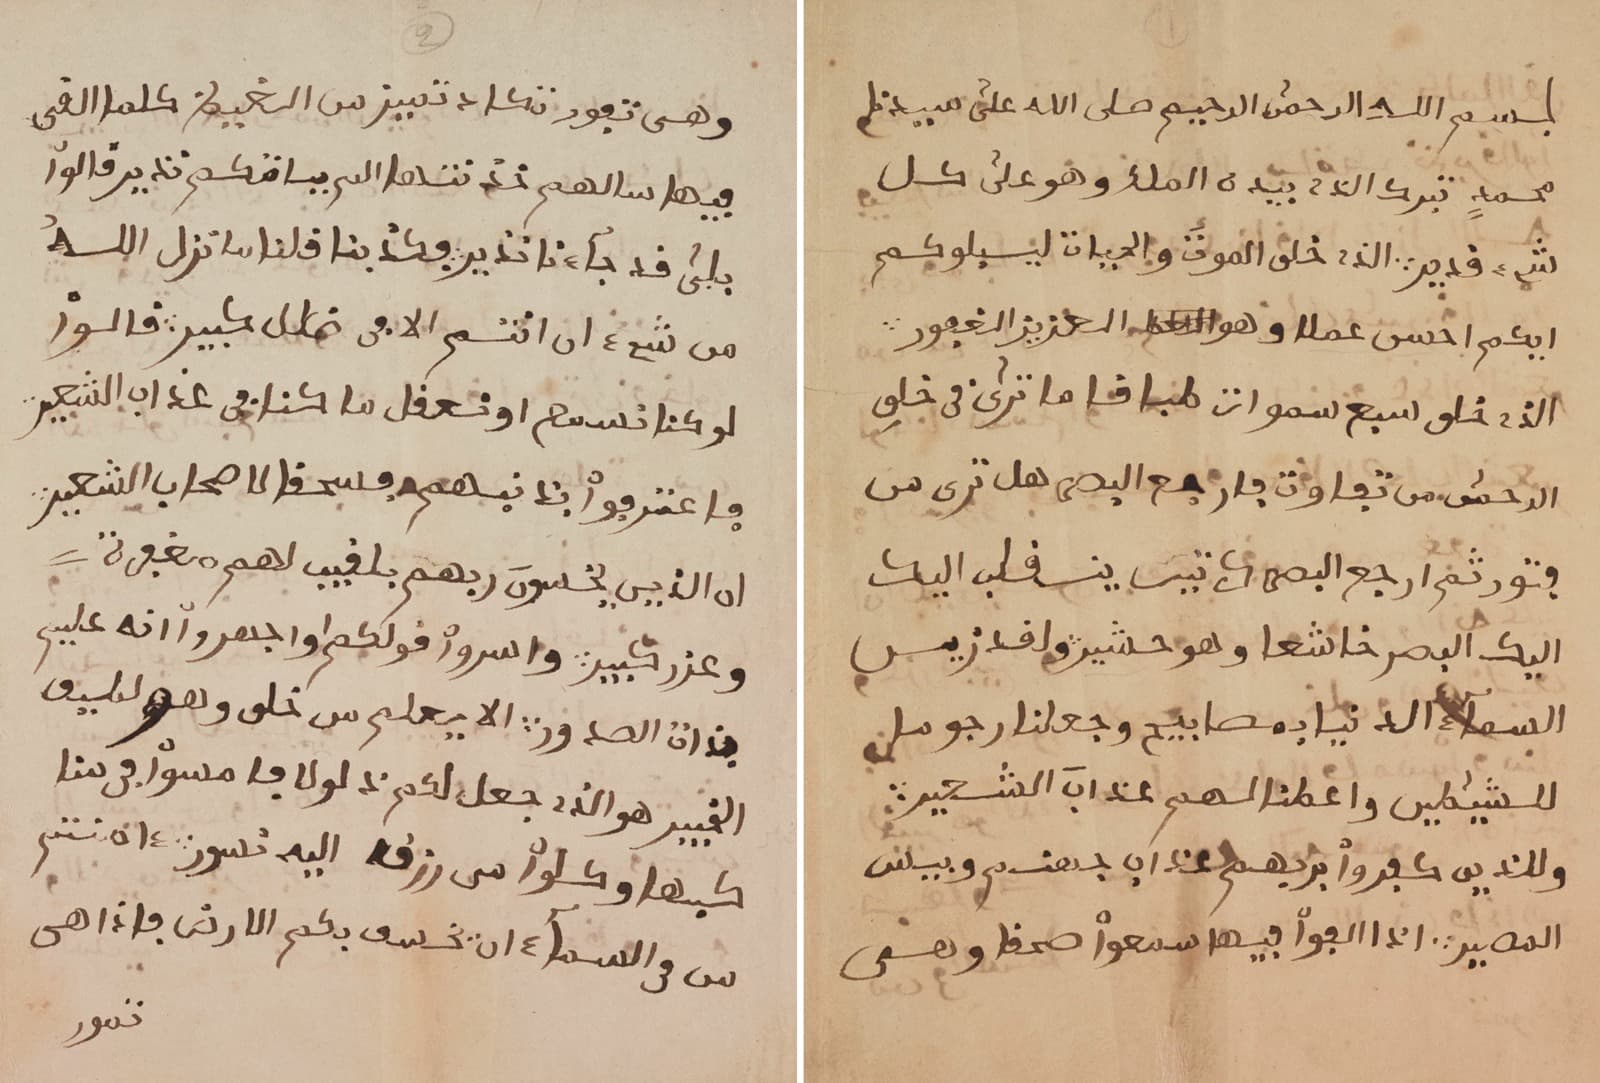 بسم الله الرحمن الرحيم صلى الله على سيدنا
محمدٍ تبرك الذي بيده الملك وهو على كل
شيء قدير الذي خلق الموت والحيات ليبلوكم
ايكم احسن عملا وهو العزيز الغفور
الذي خلق سبع سموات طباقا ما ترى في خلق
الرحمن من تفاوت فارجع البصر هل ترى من
فتور ثم ارجع البصر ينقلب اليك
اليك البصر خاشعا وهو حشير ولقد زين
السمآء الدنيا بمصابيح وجعلنا رجوما
للشيطين واعطنا لهم عذابَ الشعير
وللذين كفروا بربهم عذاب جهنم وبيس
المصير اذا القوا فيها سمعوا صحقا وهى
وهى تفور تكاد تميز من الغيظ كلما القى
فيها سالهم الم ياتكم نذير قالوا
بلى قد جآءنا نذير فكذبنا قلنا ما نزل الله
من شيء ان انتم الا فى ضلل كبير قالوا
لو كنا نسمع او نعقل ما كنا فى عذاب الشعير
فاعترفوا بذنبهم فسحقا لاصحاب الشعير
ان الذين يخسونَ ربهم بلغيب لهم مغفرة
وعزر كبير واسروا قولكم اوا جهروا انه عليم
بذات الصدور الا يعلم من خلق وهو لطيف
الخبير هو الذي جعل لكم ذلولا فامسوا فى منا
كبها وكلوا من رزقه اليه نسور ءانتم
من فى السمآء ان نخسف بكم الارض فاذا هى
تمور